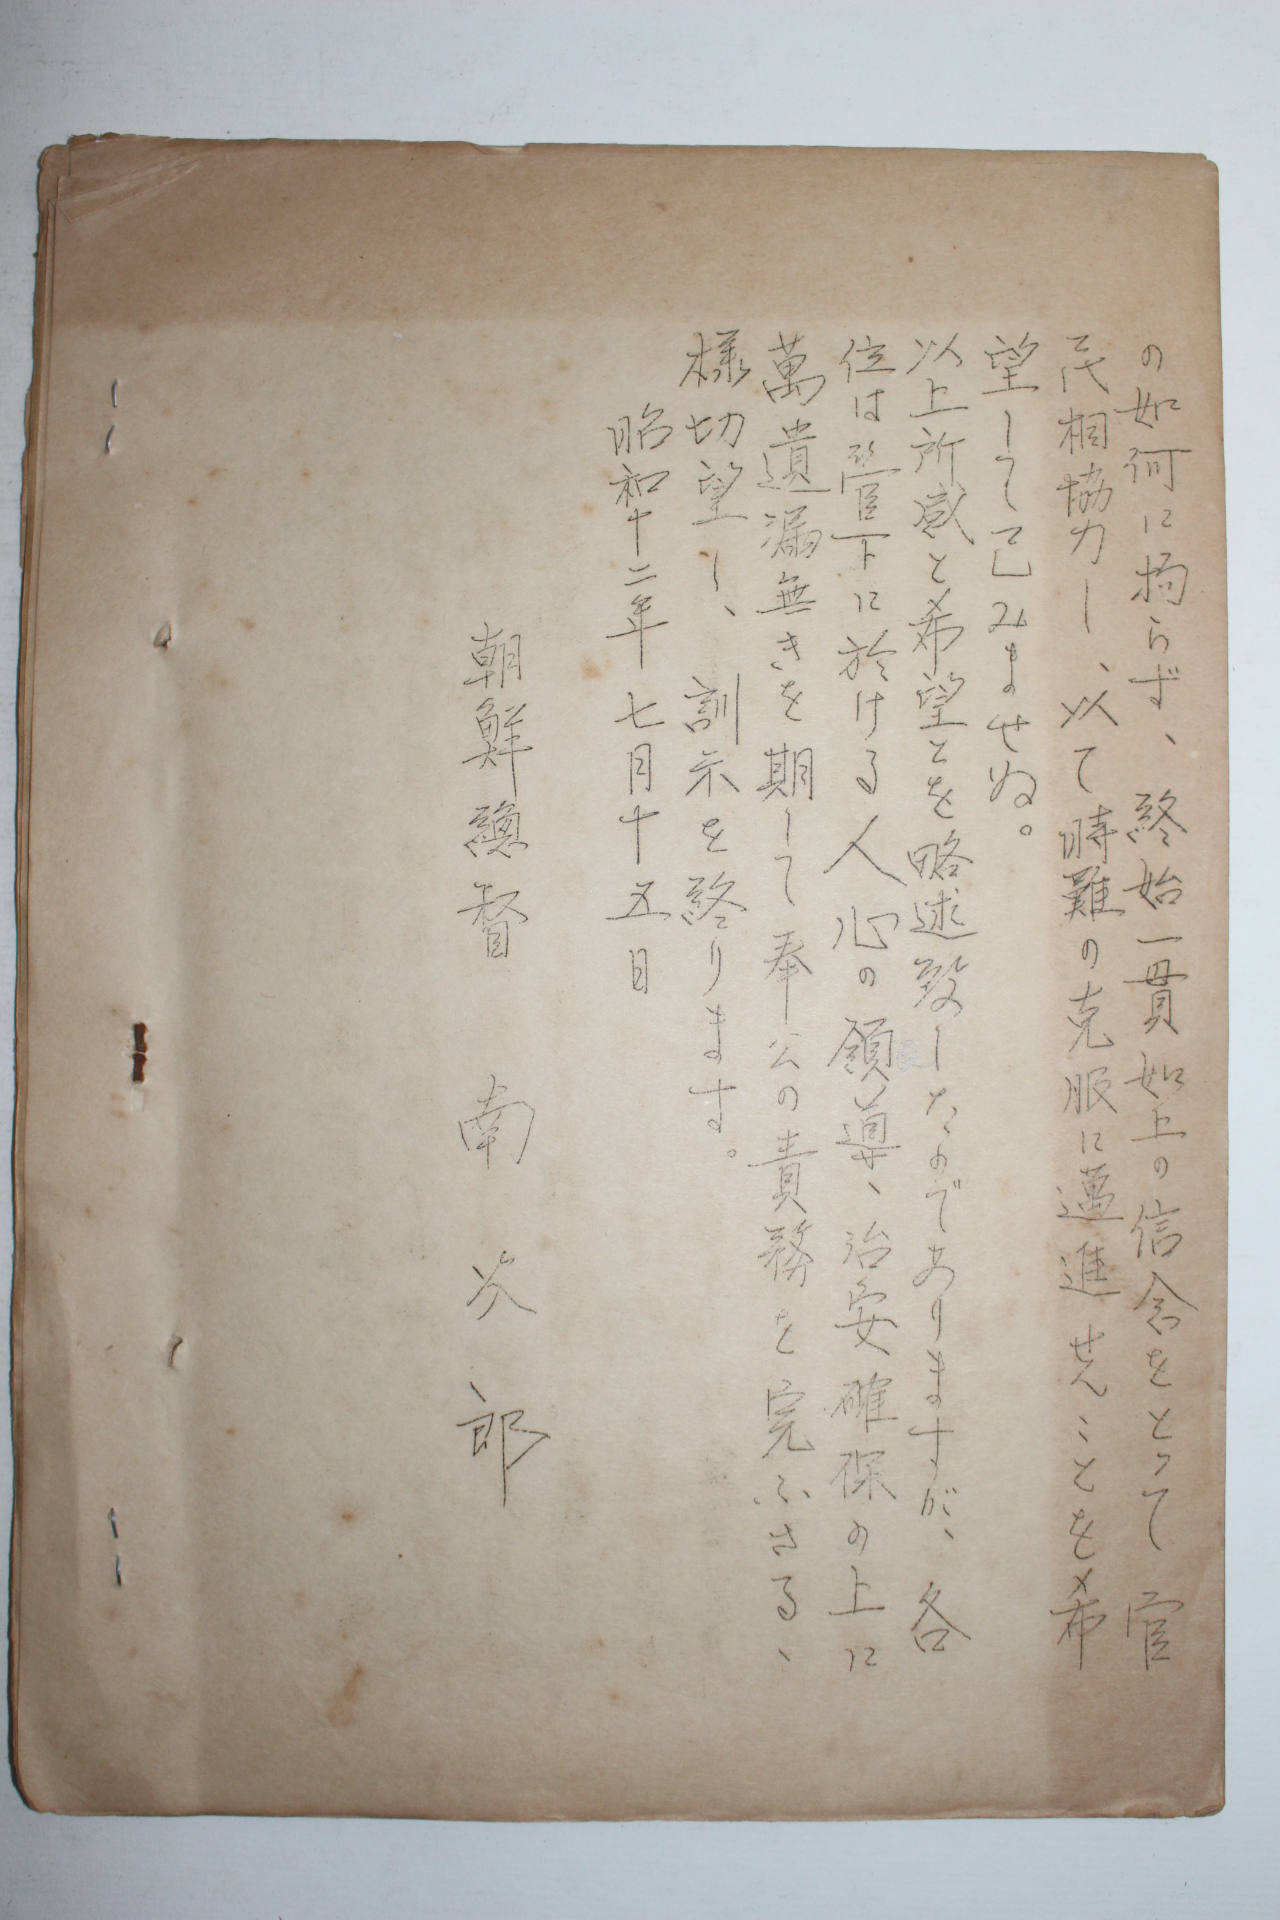 の如何に拘らず、終始一貫如上の信念をとつて官
民相協力し、以て時難の克服に邁進せんことを希
望して已みませぬ。
以上所感と希望とを略述致したのでありますが、各
位は管下に於ける人心の領導、治安確保の上に
萬遺漏無きを期して奉公の責務を完ふさる、
様切望し、訓示を終ります。
昭和十二年七月十五日
朝鮮總督 南次郎